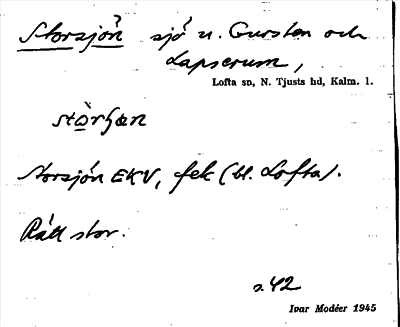 Storsjön sjö u. Gursten och
Lapserum,
Lofta sn, N. Tjusts hd, Kalm. l.
Storsjön EKV, fek (bl. Lofta).
Rätt stor.
s. 42
Ivar Modéer 1945